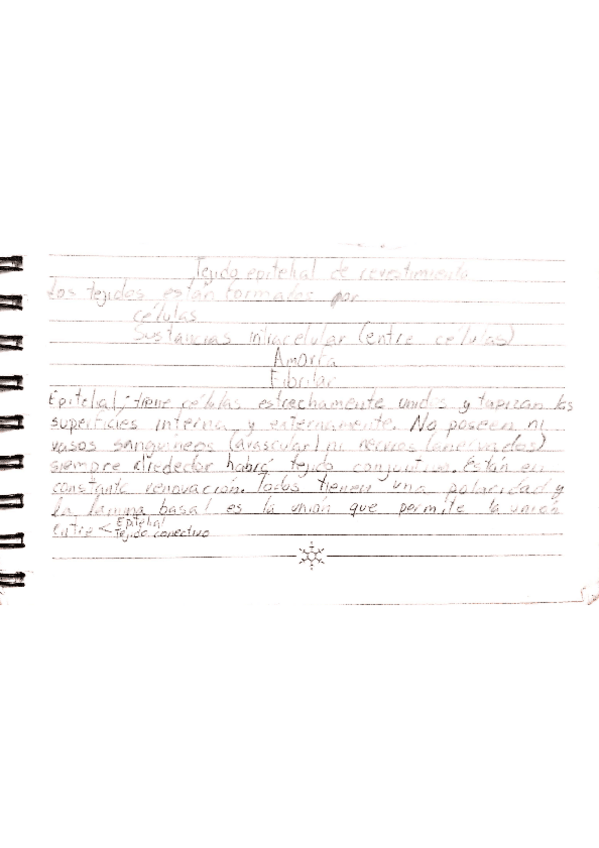 Tejido epitelial de revestimiento
Los tejidos están formados por
células
Sustancias intracelular (entre células)
Amorfa
Fibrilar
Epitelial; tiene células estrechamente unidas y tapizan las
superficies interna y externamente. No poseen ni
vasos sanguíneos (avascular) ni nervios
siempre alrededor habrá tejido conjuntivo. Están en
constante renovación. Todos tienen una polaridad y
la lámina basal es la unión que permite la unión
entre < Epitelial
tejido conectivo